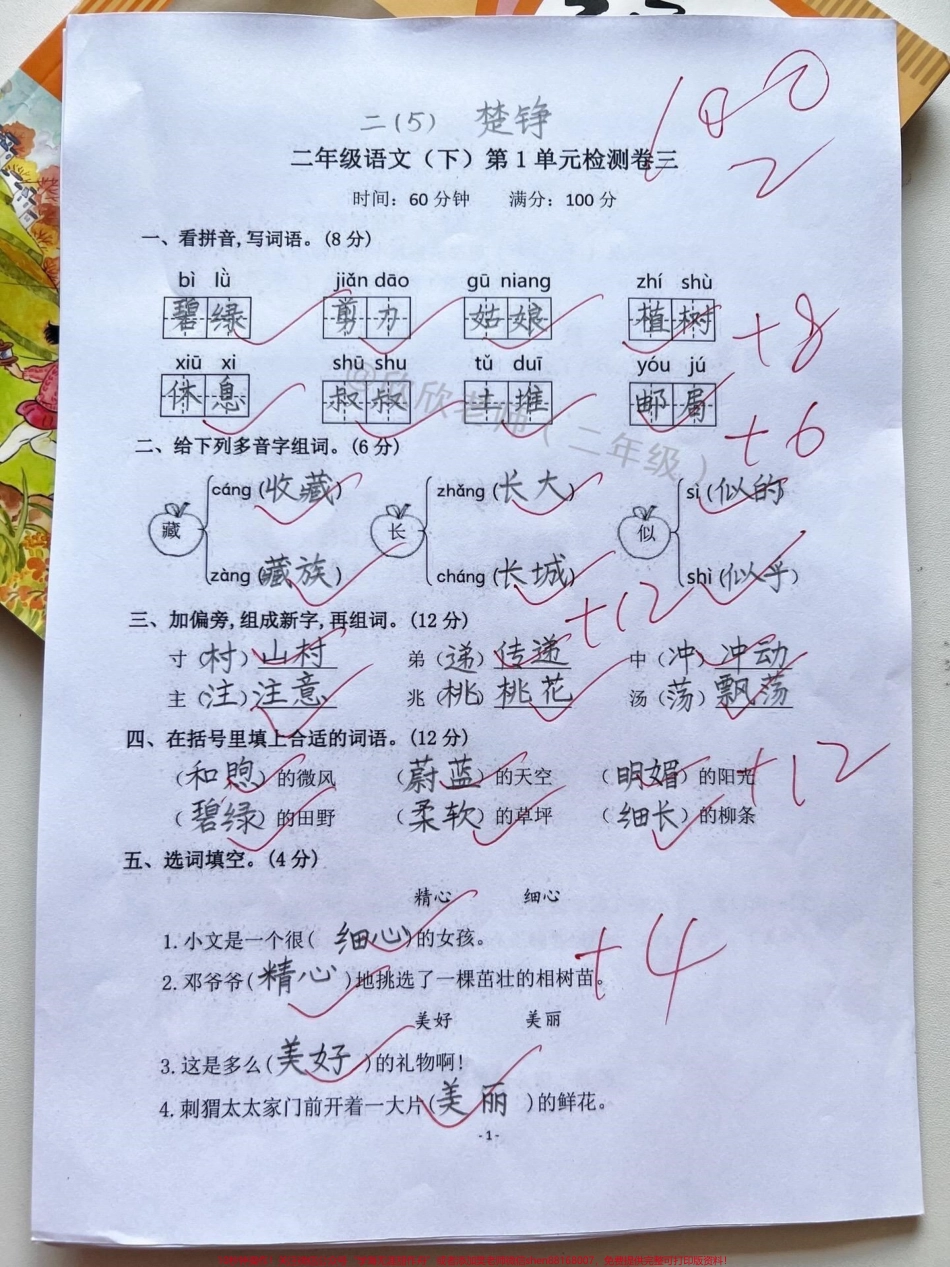 二(5) 楚铮
100
2
二年级语文（下）第1单元检测卷三
时间：60分钟 满分：100分
一、看拼音,写词语。(8分)
bì lǜ jiǎn dāo gū niang zhí shù
碧绿 剪刀 姑娘 植树
+8
xiū xi shū shu tǔ duī yóu jú
休息 叔叔 土堆 邮局
@欣欣老师（二年级）
+6
二、给下列多音字组词。(6分)
藏 cáng (收藏) 长 zhǎng (长大) 似 sì (似的)
zàng (藏族) cháng (长城) shì (似乎)
+12
三、加偏旁,组成新字,再组词。(12分)
寸（村）山村 弟（递）传递 中（冲）冲动
主（注）注意 兆（桃）桃花 汤（荡）飘荡
四、在括号里填上合适的词语。(12分)
（和煦）的微风 （蔚蓝）的天空 （明媚）的阳光
+12
（碧绿）的田野 （柔软）的草坪 （细长）的柳条
五、选词填空。(4分)
精心 细心
1.小文是一个很( 细心)的女孩。
+4
2.邓爷爷(精心 )地挑选了一棵茁壮的相树苗。
美好 美丽
3.这是多么(美好 )的礼物啊！
4.刺猬太太家门前开着一大片(美丽 )的鲜花。
- 1 -